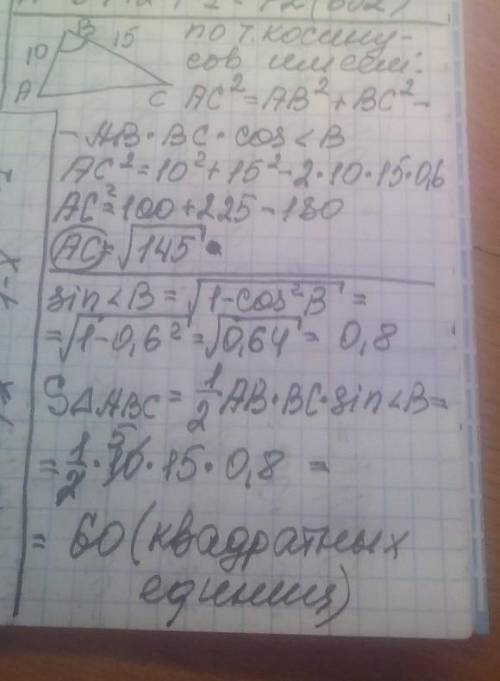 B 15 по т. косину-
10 сов имеем:
A C AC² = AB² + BC² -
- AB · BC · cos < B
AC² = 10² + 15² - 2 · 10 · 15 · 0,6
AC² = 100 + 225 - 180
AC = √145
sin < B = √1 - cos² B =
= √1 - 0,6² = √0,64 = 0,8
S△ABC = 1/2 AB · BC · sin < B =
= 1/2 · 10 5 · 15 · 0,8 =
= 60 (квадратных
единиц)